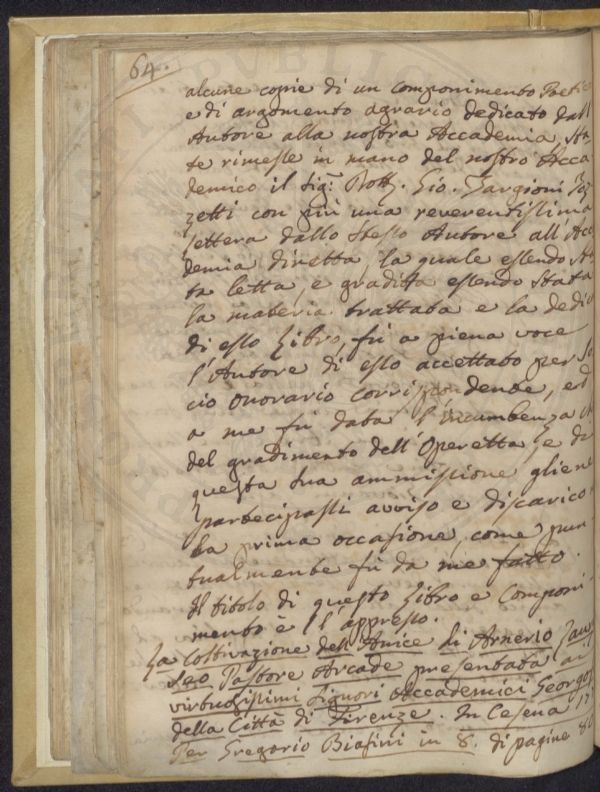 64.
alcune copie di un componimento Poetic
e di argomento agrario dedicato dall
Autore alla nostra Accademia, sta
te rimesse in mano del nostro Acca
demico il Sig.r Dott.r Gio. Targioni Toz
zetti con più una reverentissima
lettera dallo stesso Autore all'Acca
demia diretta, la quale essendo sta
ta letta, e gradita essendo stata
la materia trattata e la dedic
di esso Libro, fù a piena voce
l'Autore di esso accettato per So
cio onorario corrispondente, ed
a me fù data l'incumbenza
del gradimento dell'Operetta, e di
questa sua ammissione gliene
partecipassi avviso e discarico
la prima occasione, come pun
tualmente fù da me fatto.
Il titolo di questo Libro e Componi
mento è l'appresso.
La Coltivazione dell'Anice di Arnerio
Pastore Arcade presentata ai
virtuosissimi Signori Accademici Georgof
della Città di Firenze. In Cesena 17
Per Gregorio Biasini in 8. di pagine